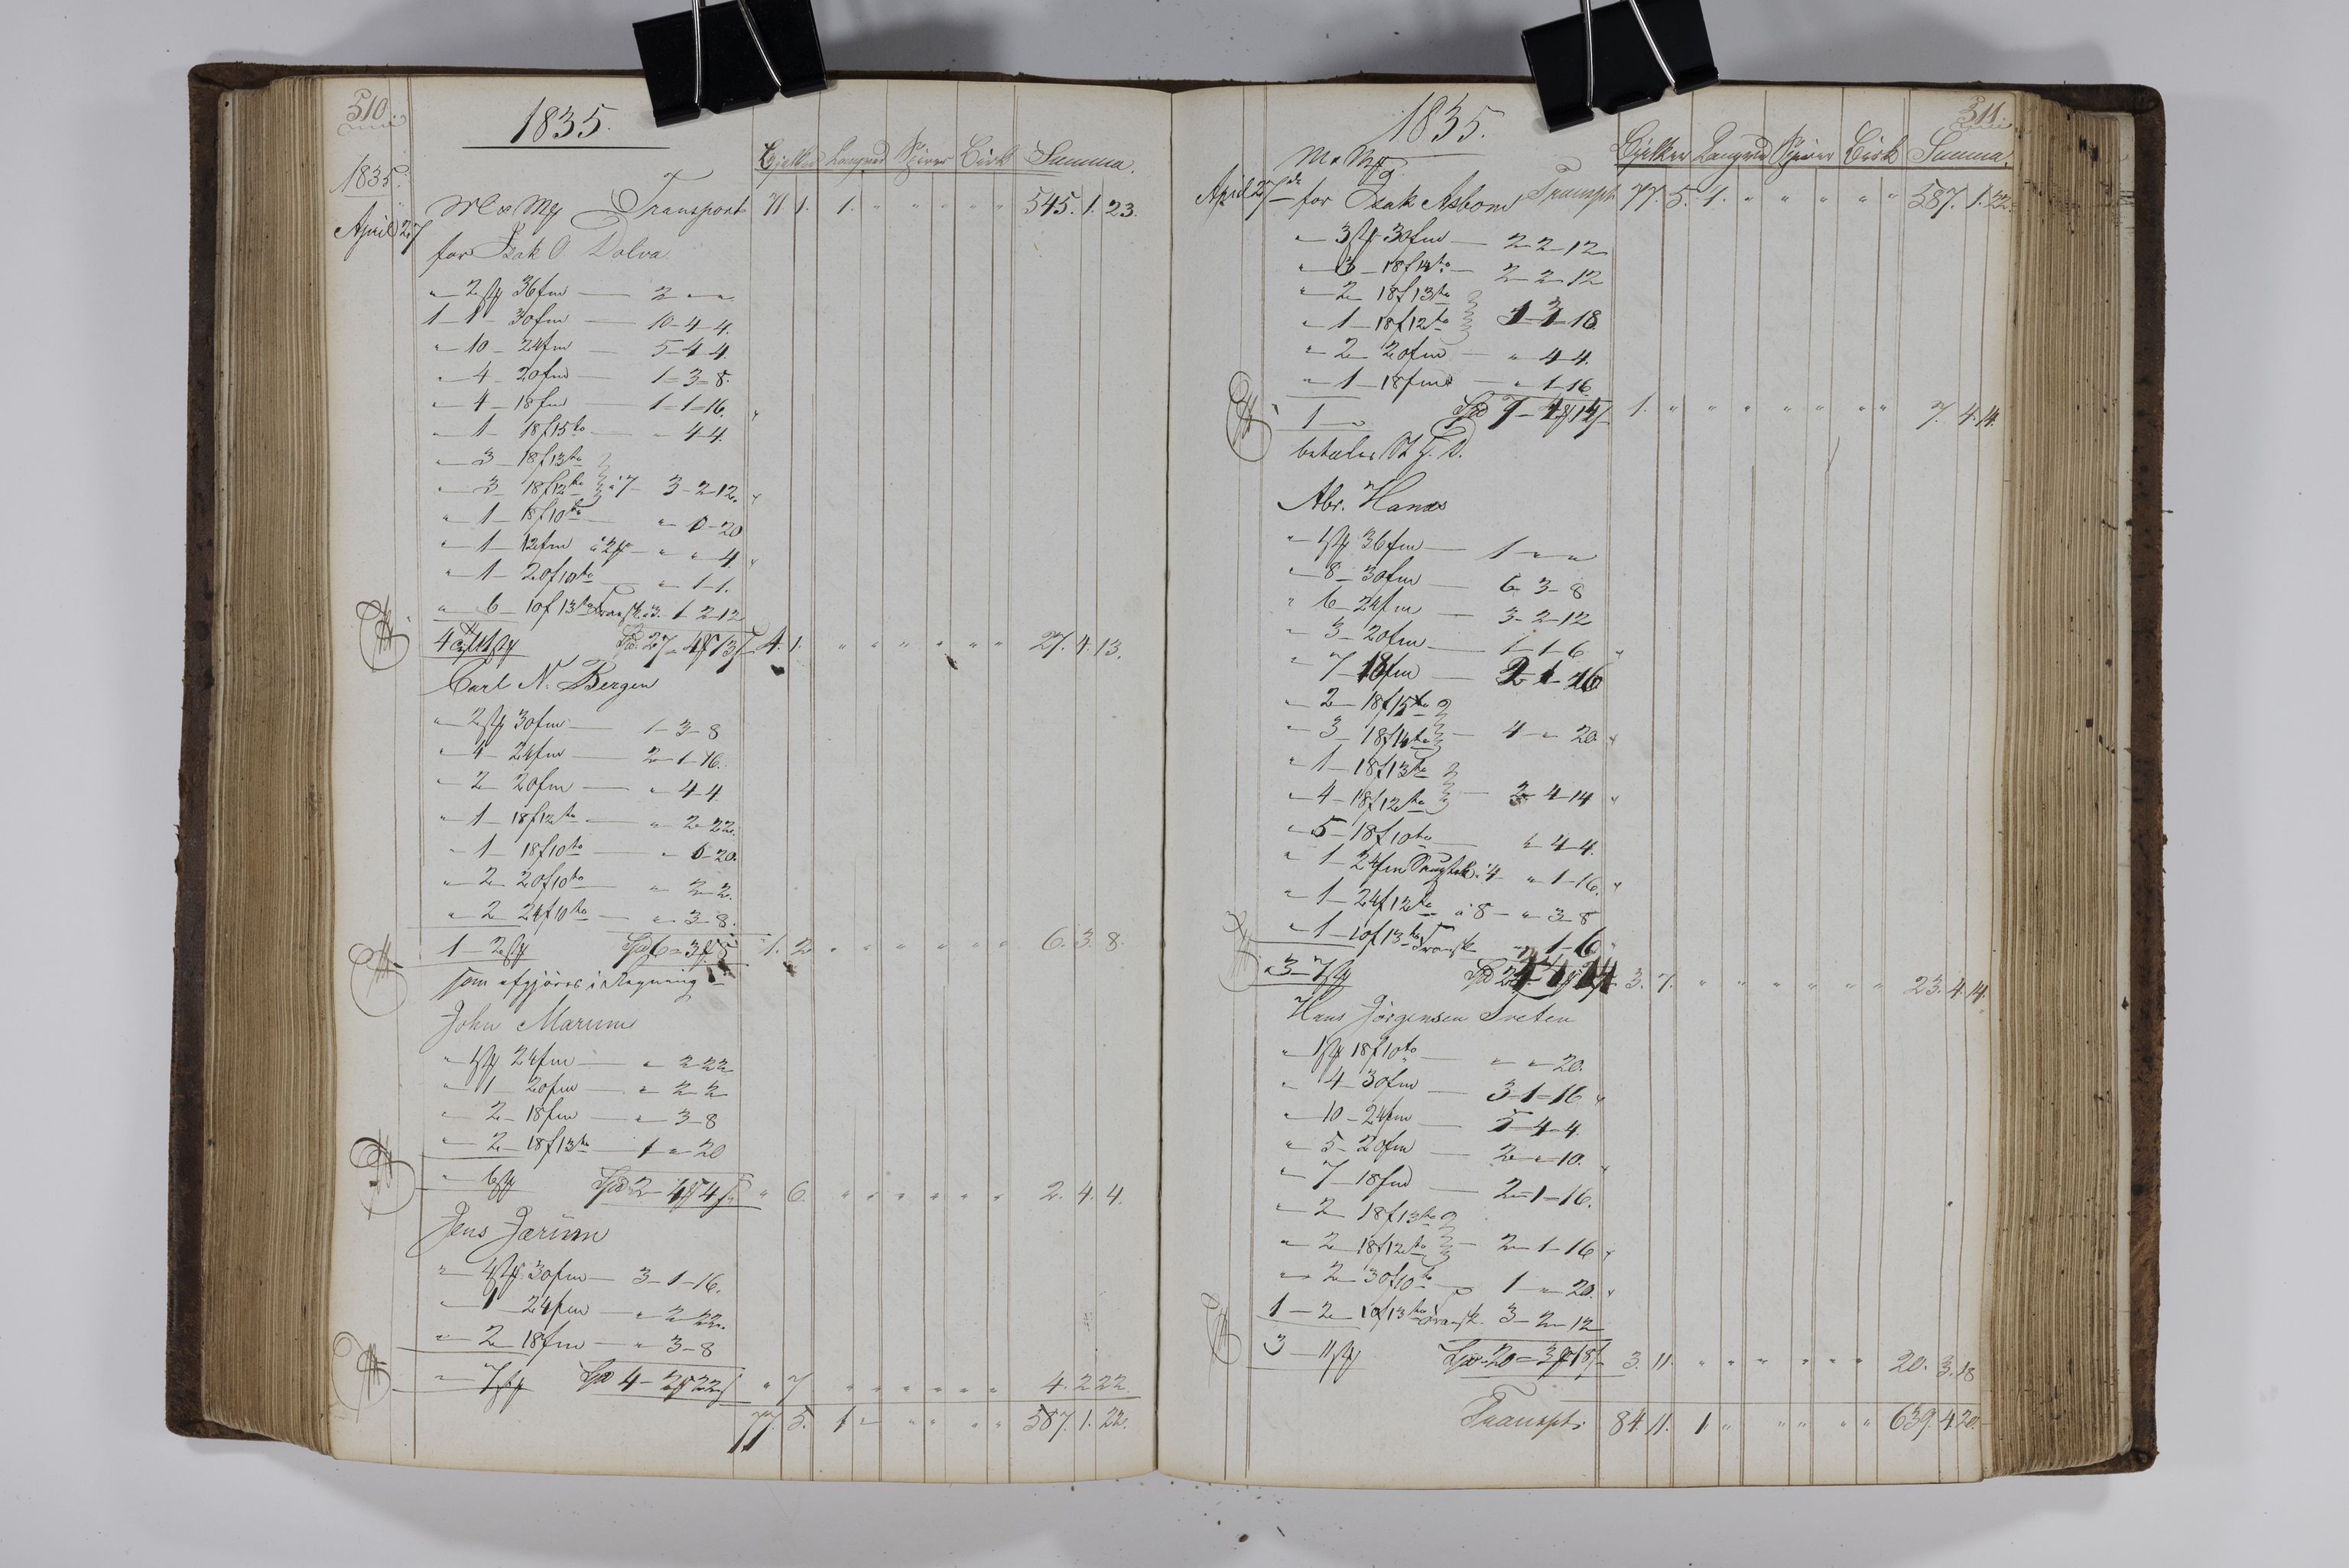 510.
1835.
Bjelker Langved Spirer Birk Summa.
1835.
Transport 71 1. 1. " " " " " 545. 1. 23.
April 27
for Isak O. Dolva
" 2 st 36 fm — 2 " "
1 - 1 - 30 fm — 10 - 4 - 4.
" 10 - 24 fm — 5 - 4 - 4.
" 4 - 20 fm — 1 - 3 - 8.
" 4 - 18 fm — 1 - 1 - 16.
" 1 - 18 f 15 to — " 4 - 4.
" 3 - 18 f 13 to
" 3 - 18 f 12 to à 7 - 3 - 2 - 12.
" 1 - 18 f 10 to " 0 - 20
" 1 - 12 fm " " 4.
" 1 - 20 f 10 to — " 1 - 1.
" 6 - 10 f 13 to 1 - 2 - 12
Spd 27 - 4 13 4. 1. " " " " " " 27. 4. 13.
Carl N. Bergen
" 2 st 30 fm — 1 - 3 - 8
" 4 - 24 fm — 2 - 1 - 16.
" 2 - 20 fm — " 4 - 4
" 1 - 18 f 12 to — " 2 - 22.
" 1 - 18 f 10 to — " 0 - 20.
" 2 - 20 f 10 to — " 2 - 2.
" 2 - 24 f 10 to — " 3 - 8.
1 - 2 st Spd 6 - 3 8 1. 2. " " " " " " 6. 3. 8.
som afgjöres i Regning
John Marum
" 1 st 24 fm — " 2 - 22
" 1 - 20 fm — " 2 - 2
" 2 - 18 fm — " 3 - 8
" 2 - 18 f 13 to — 1 " 20
" 6 st Spd 2 - 4 4 " 6. " " " " " " 2. 4. 4.
Jens Jærum
" 4 st 30 fm — 3 - 1 - 16.
" 1 - 24 fm — " 2 - 22.
" 2 - 18 fm — " 3 - 8
" 7 st Spd 4 - 2 22 " 7 " " " " " " 4. 2. 22
77. 5. 1 " " " " " 587. 1. 22.
311.
1835.
Bjelker Langved Spirer Birk Summa.
April 27 de for Isak Asbom Transpt. 77. 5. 1. " " " " " 587. 1. 22.
" 3 st 30 fm — 2 - 2 - 12
" 3 - 18 f 14 to — 2 - 2 - 12
" 2 - 18 f 13 to
" 1 - 18 f 12 to 18
" 2 - 20 fm — " 4 - 4.
" 1 - 18 fm — " 1 - 16
1 — " Spd 7 - 4 14 1. " " " " " " " 7. 4. 14.
betales
Abr. Hanæs
" 1 st 36 fm — 1 " "
" 8 - 30 fm — 6 - 3 - 8
" 6 - 24 fm — 3 - 2 - 12
" 3 - 20 fm — 1 - 1 - 6
" 7 - 18 fm — 2 - 1 - 16
" 2 - 18 f 15 to
" 3 - 18 f 14 to — 4 " 20.
" 1 - 18 f 13 to
" 4 - 18 f 12 to — 2 - 4 - 14
" 5 - 18 f 10 to " 4 - 4.
" 1 - 24 fm à 4 " 1 - 16.
" 1 - 24 f 12 to à 8 - " 3 - 8
" 1 - 10 f 13 to " 1 - 6
" 3 - 7 st Spd 3. 7. " " " " " " 23. 4. 14.
Hans Jörgensen Treten
" 1 st 18 f 10 to — " " 20.
" 4 - 30 fm — 3 - 1 - 16
" 10 - 24 fm — 5 - 4 - 4.
" 5 - 20 fm — 2 " 10.
" 7 - 18 fm — 2 - 1 - 16.
" 2 - 18 f 13 to
" 2 - 18 f 12 to — 2 - 1 - 16
" 2 - 30 f 10 to 1 " 20.
1 - 2 - 10 f 13 to 3 - 2 - 12
3 - 11 st Spd 20 - 3 18 3. 11. " " " " " " 20. 3. 18
Transpt. 84. 11. 1. " " " " " 639. 4. 20.